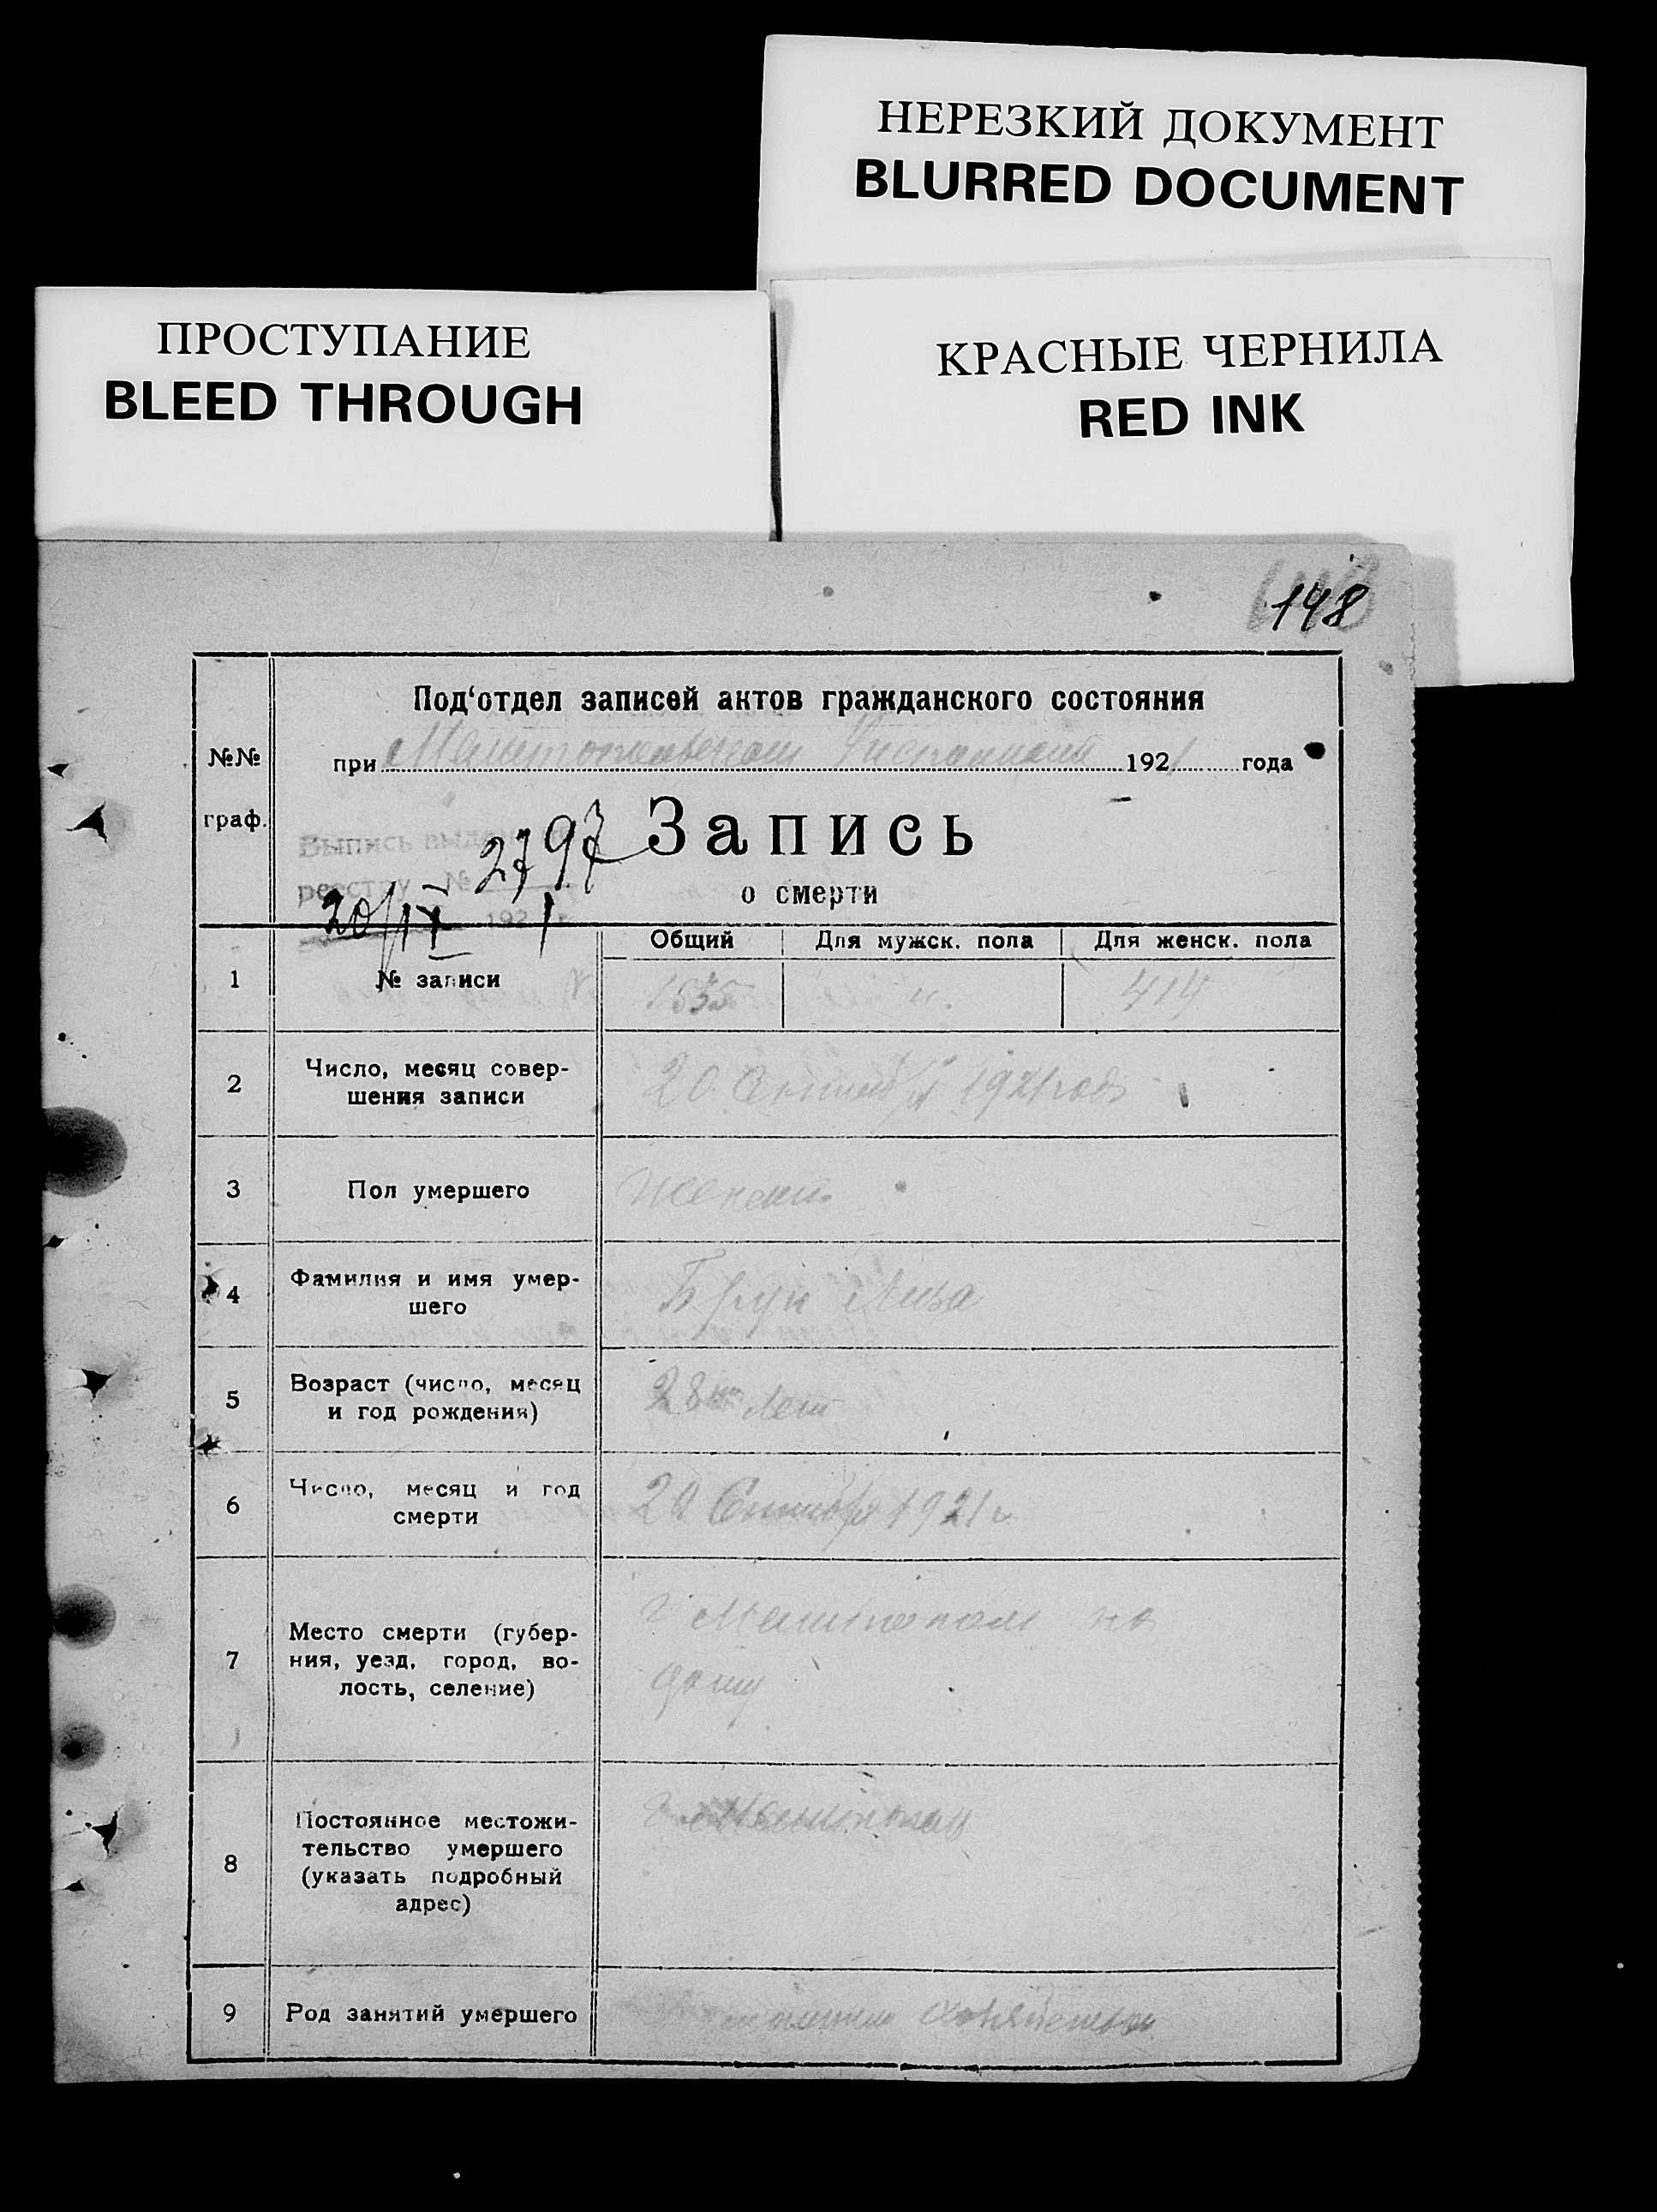 НЕРЕЗКИЙ ДОКУМЕНТ
BLURRED DOCUMENT
ПРОСТУПАНИЕ
BLEED THROUGH
КРАСНЫЕ ЧЕРНИЛА
RED INK
148
№№
граф.
Под‘отдел записей актов гражданского состояния
при 1921 года
Выпись
2797
реестру №
20/IX 1921
Запись
о смерти
Общий Для мужск. пола Для женск. пола
1 № записи 1535 414
2 Число, месяц совер-
шения записи
20 1921 года
3 Пол умершего
Женский
4 Фамилия и имя умер-
шего
Брук Лиза
5 Возраст (число, месяц
и год рождения)
28 лет
6 Число, месяц и год
смерти
20 Сентября 1921 г.
7 Место смерти (губер-
ния, уезд, город, во-
лость, селение)
г. Мелитополь на
дому
8 Постоянное местожи-
тельство умершего
(указать подробный
адрес)
г. Мелитополь
9 Род занятий умершего